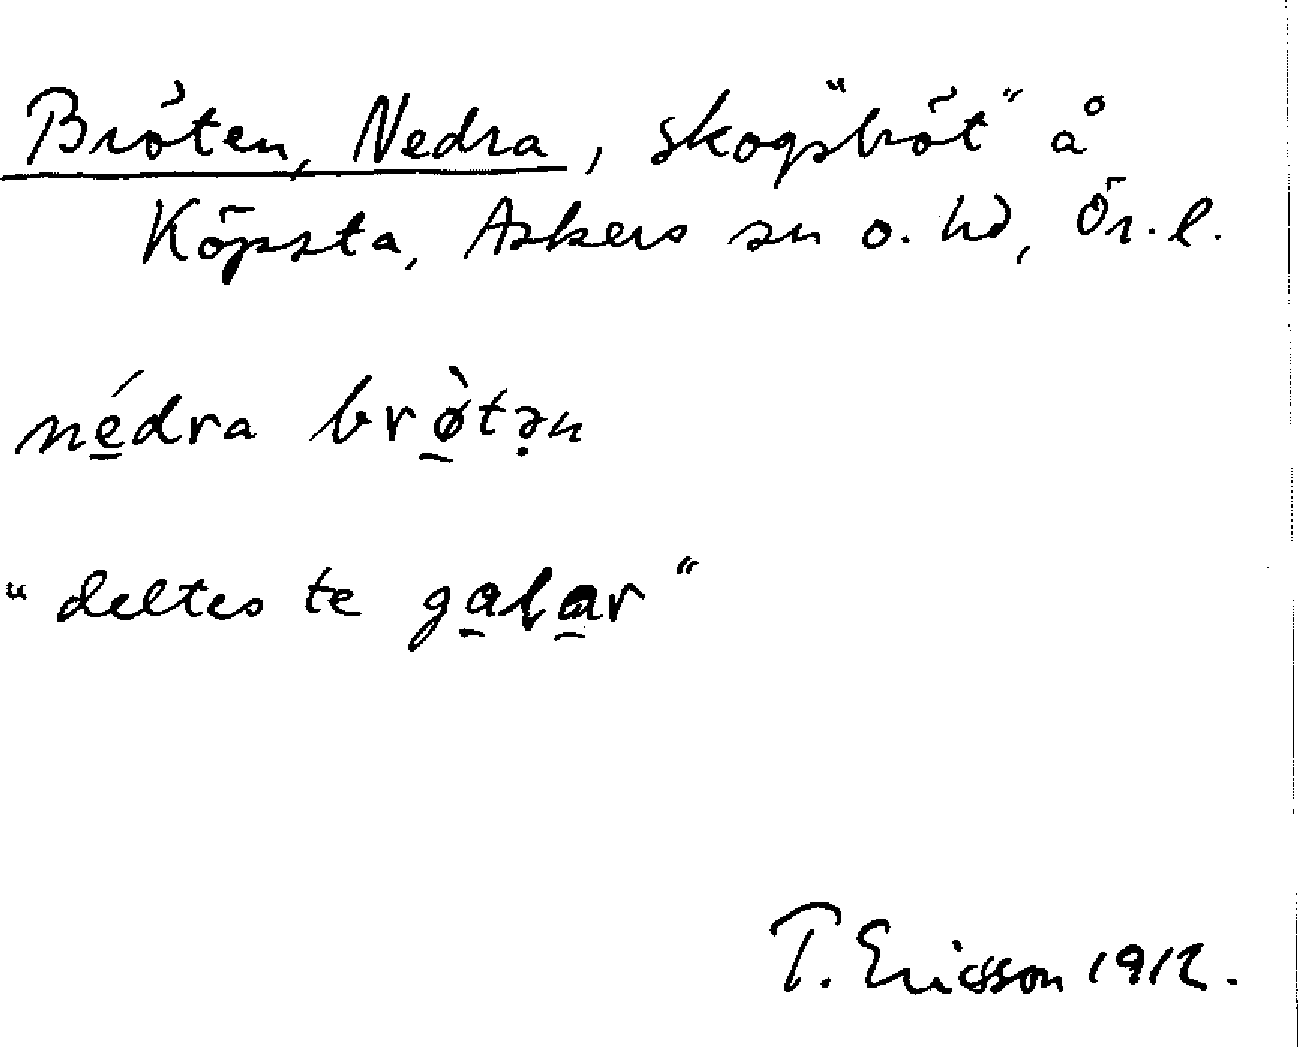 Bröten, Nedra, skogs"bröt" å
Köpsta, Askers sn o. hd, Ör. l.
nédra brø̀tən
"deltes te gaŧar"
T. Ericsson 1912.